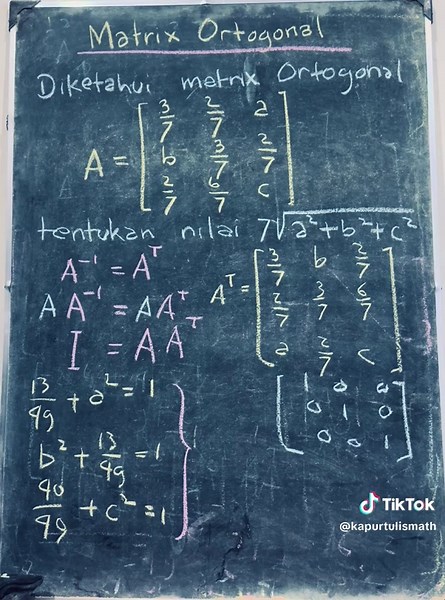 Matrix Ortogonal
Diketahui metrix Ortogonal
A = [ 3/7 2/7 a
b 3/7 2/7
2/7 6/7 c ]
tentukan nilai 7√a²+b²+c²
A⁻¹ = Aᵀ
A A⁻¹ = A Aᵀ
I = A Aᵀ
Aᵀ = [ 3/7 b 2/7
2/7 3/7 6/7
a 2/7 c ]
[ 1 0 0
0 1 0
0 0 1 ]
13/49 + a² = 1
b² + 13/49 = 1
40/49 + c² = 1 }
TikTok
@kapurtulismath